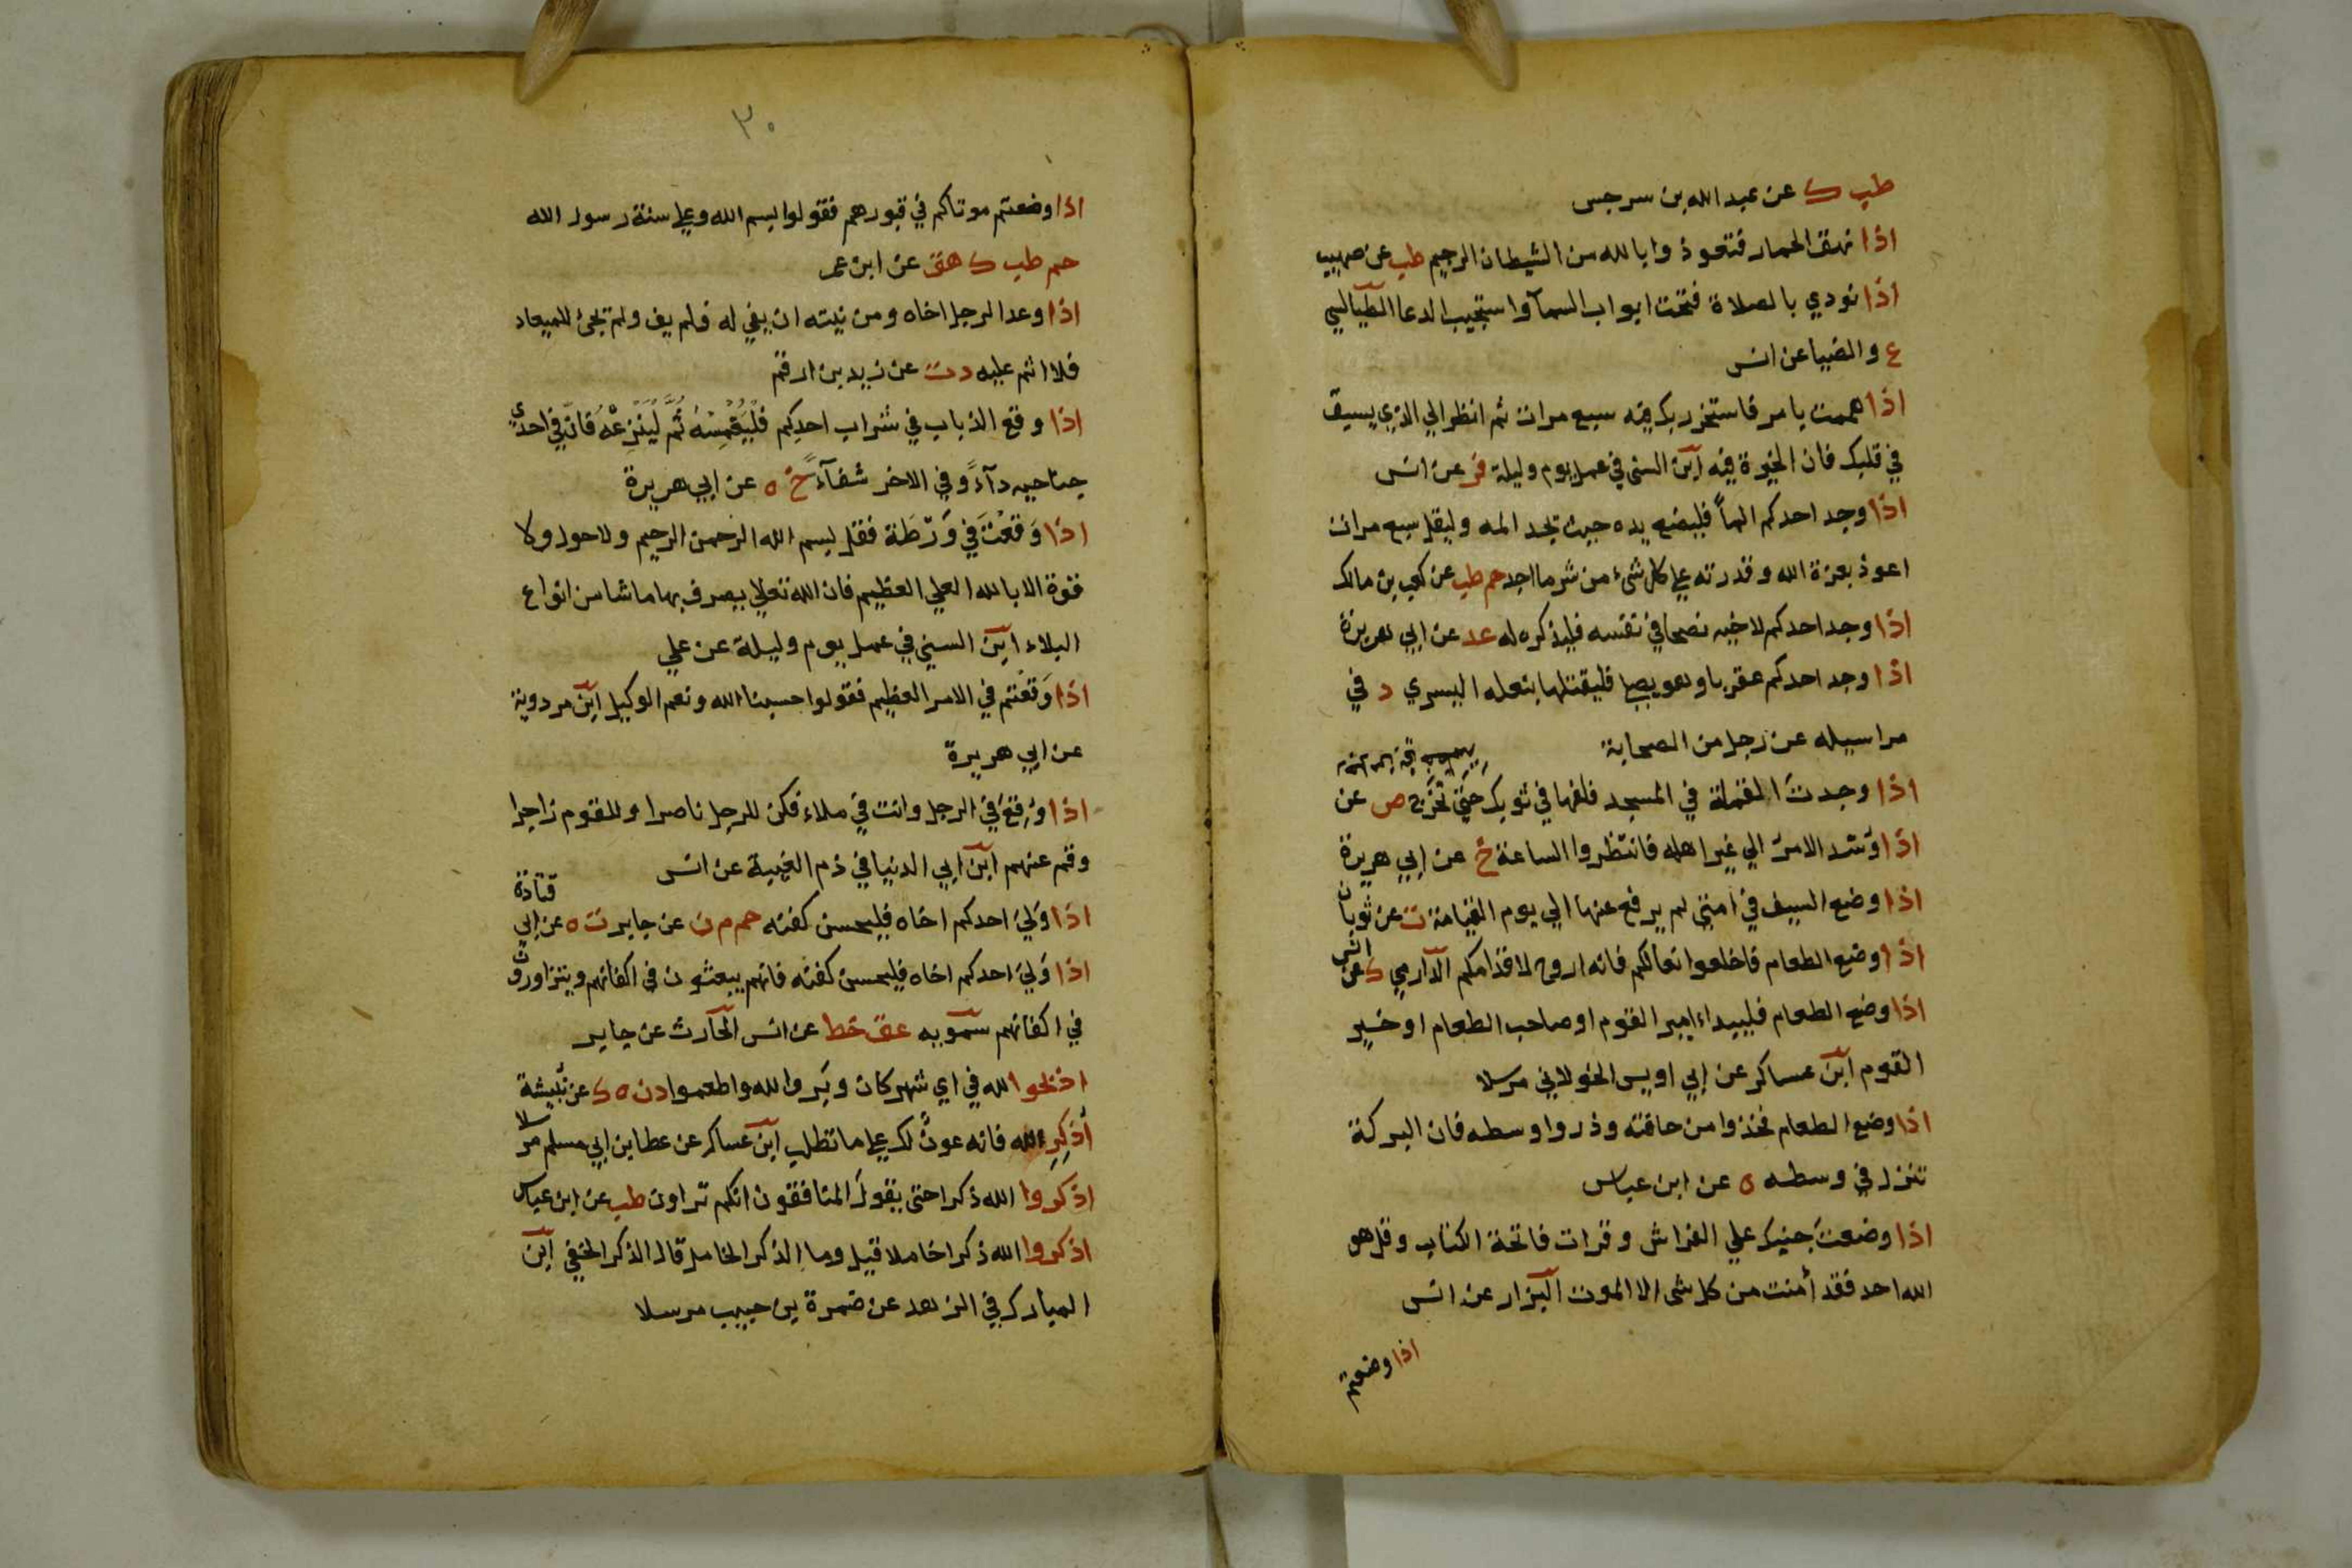 طب ك عن عبد الله بن سرجس
اذا نهق الحمار فتعوذوا بالله من الشيطان الرجيم طب عن صهيب
اذا نودي بالصلاة فتحت ابواب السمآ واستجيب الدعا الطيالسي
ع والضيا عن انس
اذا هممت بامر فاستخر ربك فيه سبع مرات ثم انظر الي الذي يسبق
في قلبك فان الخيرة فيه ابن السني في عمل يوم وليلة فر عن انس
اذا وجد احدكم الماً فليضع يده حيث يجد المه وليقل سبع مرات
اعوذ بعزة الله وقدرته علي كل شيء من شر ما اجد حم طب عن كعب بن مالك
اذا وجد احدكم لاخيه نصحا في نفسه فليذكره له عد عن ابي هريرة
اذا وجد احدكم عقربا وهو يصلي فليقتلها بنعله اليسري د في
مراسيله عن رجل من الصحابة
اذا وجدت القملة في المسجد فلفها في ثوبك حتي تخرج ص عن
اذا وُسّد الامرُ الي غير اهله فانتظروا الساعة خ عن ابي هريرة
اذا وضع السيف في امتي لم يرفع عنها الي يوم القيامة ت عن ثوبان
اذا وضع الطعام فاخلعوا نعالكم فانه اروح لاقدامكم الدارمي ك عن انس
اذا وضع الطعام فليبداء امير القوم او صاحب الطعام او خير
القوم ابن عساكر عن ابي اويس الخولاني مرسلا
اذا وضع الطعام فخذوا من حافته وذروا وسطه فان البركة
تنزل في وسطه ه عن ابن عباس
اذا وضعتَ جنبك علي الفراش وقرات فاتحة الكتاب وقل هو
الله احد فقد أمنت من كل شي الا الموت البزار عن انس
اذا وضعتم
٣٠
اذا وضعتم موتاكم في قبورهم فقولوا بسم الله وعلي سنة رسول الله
حم طب ك هق عن ابن عمر
اذا وعد الرجل اخاه ومن نيته ان يفي له فلم يف ولم يجئ للميعاد
فلا اثم عليه د ت عن زيد بن ارقم
اذا وقع الذباب في شراب احدكم فليَغْمِسْهُ ثُمَّ لْيَنْزِعْهُ فان في احدي
جناحيه دآءً وفي الاخر شفآءً خ ه عن ابي هريرة
اذا وَقعْتَ في وَرْطَة فقل بسم الله الرحمن الرحيم ولا حول ولا
قوة الا بالله العلي العظيم فان الله تعالي يصرف بها ما شا من انواع
البلاء ابن السني في عمل يوم وليلة عن علي
اذا وَقعْتم في الامر العظيم فقولوا حسبنا الله ونعم الوكيل ابن مردوية
عن ابي هريرة
اذا وُقِعَ في الرجل وانت في ملاء فكن للرجل ناصرا وللقوم زاجرا
وقم عنهم ابن ابي الدنيا في ذم الغيبة عن انس
اذا وَلِيَ احدكم اخاه فليحسن كفنه حم م ن عن جابر ت ه عن ابي قتادة
اذا وَلِيَ احدكم اخاه فليحسن كفنه فانهم يبعثون في اكفانهم ويتزاورون
في اكفانهم سمويه عق خط عن انس الحارث عن جابر
اذبحوا لله في اي شهر كان وبَروا لله واطعموا د ن ه ك عن نُبيشة
أذكرِ الله فانه عونٌ لك علي ما تطلب ابن عساكر عن عطا بن ابي مسلم مرسلا
اذكروا الله ذكرا حتي يقولَ المنافقون انكم تراون طب عن ابن عباس
اذكروا الله ذكرا خاملا قيل وما الذكر الخامل قال الذكر الخفي ابن
المبارك في الزهد عن ضمرة بن حبيب مرسلا